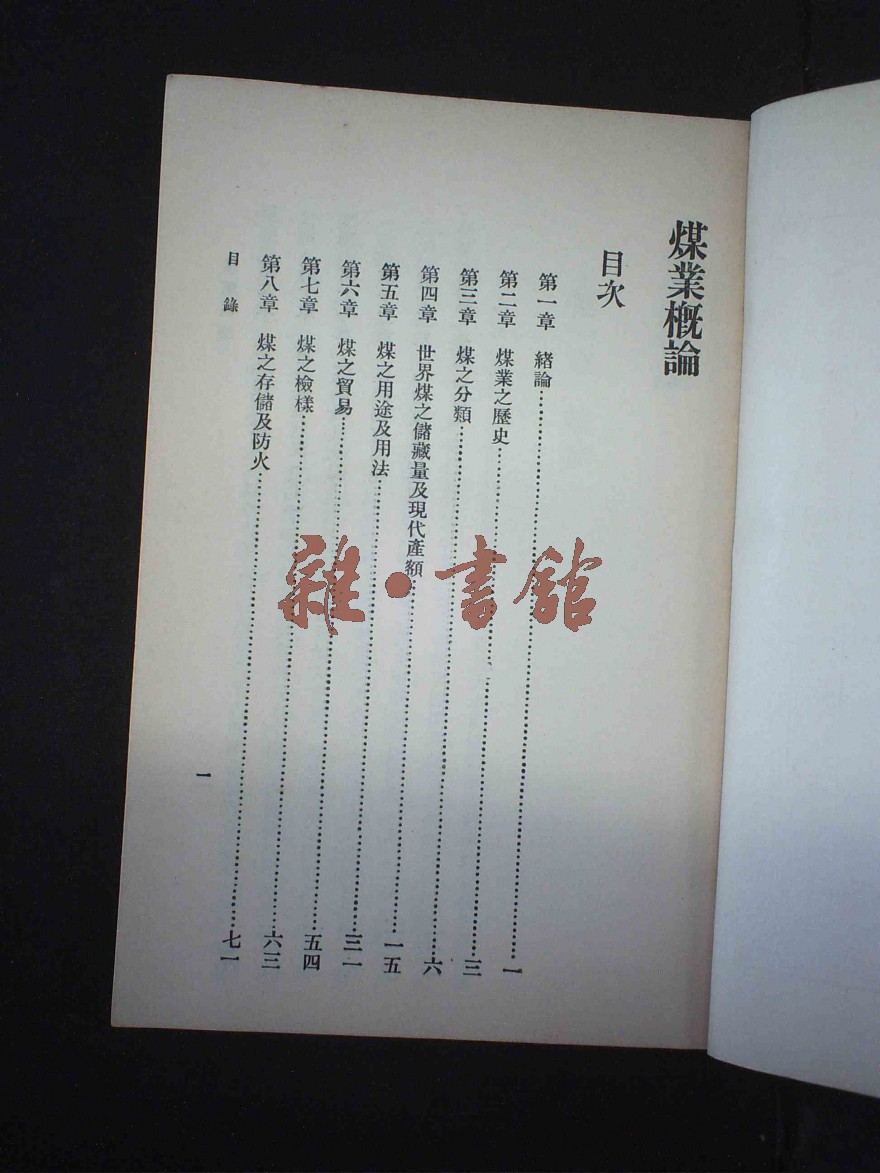 煤業槪論
目次
第一章 緒論……………一
第二章 煤業之歷史……………三
第三章 煤之分類……………六
第四章 世界煤之儲藏量及現代產額……………一五
第五章 煤之用途及用法……………三一
第六章 煤之貿易……………五四
第七章 煤之檢樣……………六三
第八章 煤之存儲及防火……………七一
目錄
一
雜·書館